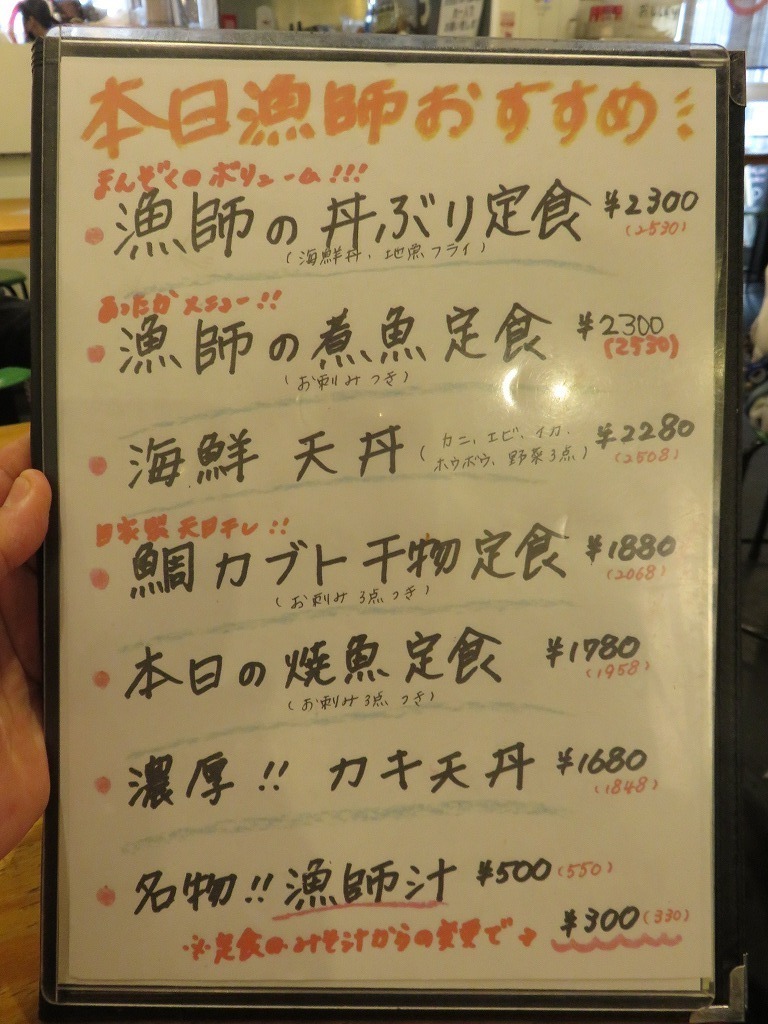 本日漁師おすすめ
まんぞくのボリューム!!!
漁師の丼ぶり定食 ¥2300
(海鮮丼、地魚フライ) (2530)
あったかメニュー!!
漁師の煮魚定食 ¥2300
(お刺みつき) (2530)
海鮮天丼 (カニ、エビ、イカ、ホウボウ、野菜3点) ¥2280
(2508)
自家製天日干し!!
鯛カブト干物定食 ¥1880
(お刺み3点つき) (2068)
本日の焼魚定食 ¥1780
(お刺み3点つき) (1958)
濃厚!! カキ天丼 ¥1680
(1848)
名物!! 漁師汁 ¥500 (550)
※定食のみそ汁からの変更で→ ¥300 (330)